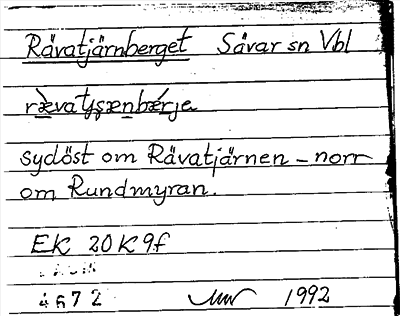 Rävatjärnberget Sävar sn Vbl
rævatjæɳbærje
sydöst om Rävatjärnen – norr
om Rundmyran.
EK 20K9f
4672 1992